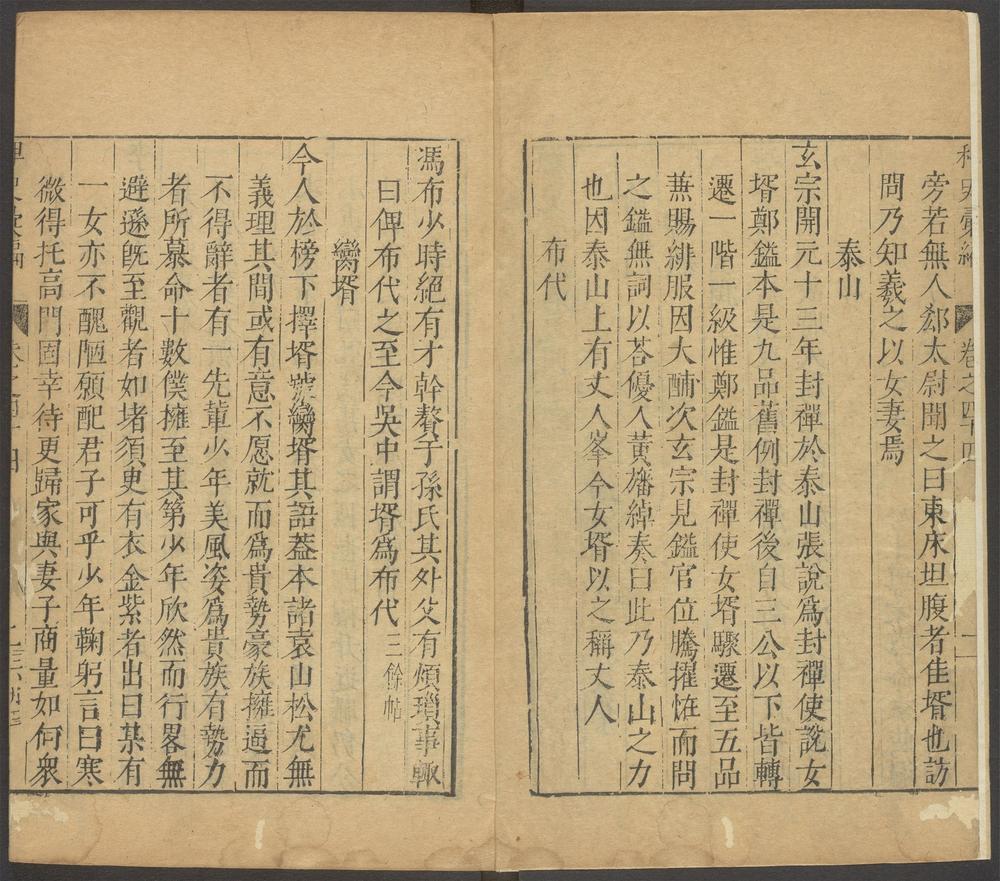 卷之四十四
旁若無人郄太尉聞之曰東床坦腹者佳壻也訪
問乃知羲之以女妻焉
泰山
玄宗開元十三年封禪於泰山張說爲封禪使說女
壻鄭鎰本是九品舊例封禪後自三公以下皆轉
遷一階一級惟鄭鎰是封禪使女壻驟遷至五品
兼賜緋服因大酺次玄宗見鎰官位騰擢恠而問
之鎰無詞以荅優人黃旛綽奏曰此乃泰山之力
也因泰山上有丈人峯今女壻以之稱丈人
布代
馮布少時絕有才幹贅于孫氏其外父有煩瑣事輙
曰俾布代之至今吳中謂壻爲布代三餘帖
臠壻
今人於榜下擇壻號臠壻其語葢本諸袁山松尤無
義理其間或有意不愿就而爲貴勢豪族擁逼而
不得辭者有一先軰少年美風姿爲貴族有勢力
者所慕命十數僕擁至其第少年欣然而行畧無
避遜旣至觀者如堵須㬰有衣金紫者出曰某有
一女亦不醜陋願配君子可乎少年鞠躬言曰寒
微得托高門固幸待更歸家與妻子商量如何衆